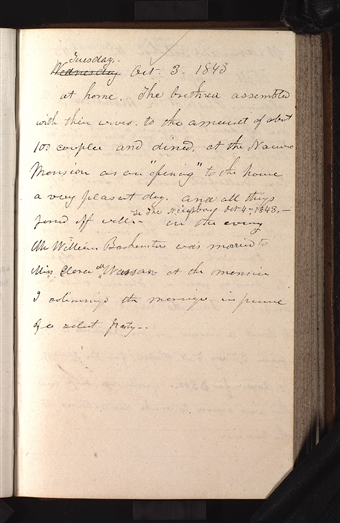 Tuesday.
Wednesday Oct. 3. 1843
at home. The brethren assembled
with their wives. to the amount of about
100 couples and dined. at the Nauvoo
Mansion as an "opening" to the house
a very pleasant day. and all things
see the Neighbor Oct 4-1843.-
passed off well. in the evening
Mr William Backenstos was married to
Miss Clara M Wasson at the mansion
I solemnized the marriage in presence
of a select party..